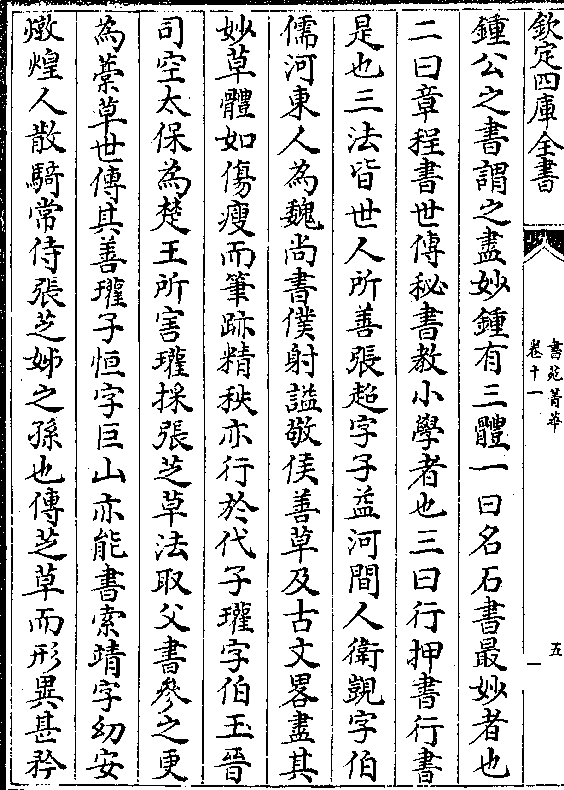 欽定四庫全書
書苑菁華
卷十一
五
鍾公之書謂之盡妙鍾有三體一曰名石書最妙者也
二曰章程書世傳秘書教小學者也三曰行押書行書
是也三法皆世人所善張超字子並河間人衛覬字伯
儒河東人為魏尚書僕射謚敬侯善草及古文畧盡其
妙草體如傷瘦而筆跡精殊亦行於代子瓘字伯玉晉
司空太保為楚王所害瓘採張芝草法取父書參之更
為藁草世傳其善瓘子恒字巨山亦能書索靖字幼安
燉煌人散騎常侍張芝姊之孫也傳芝草而形異甚矜